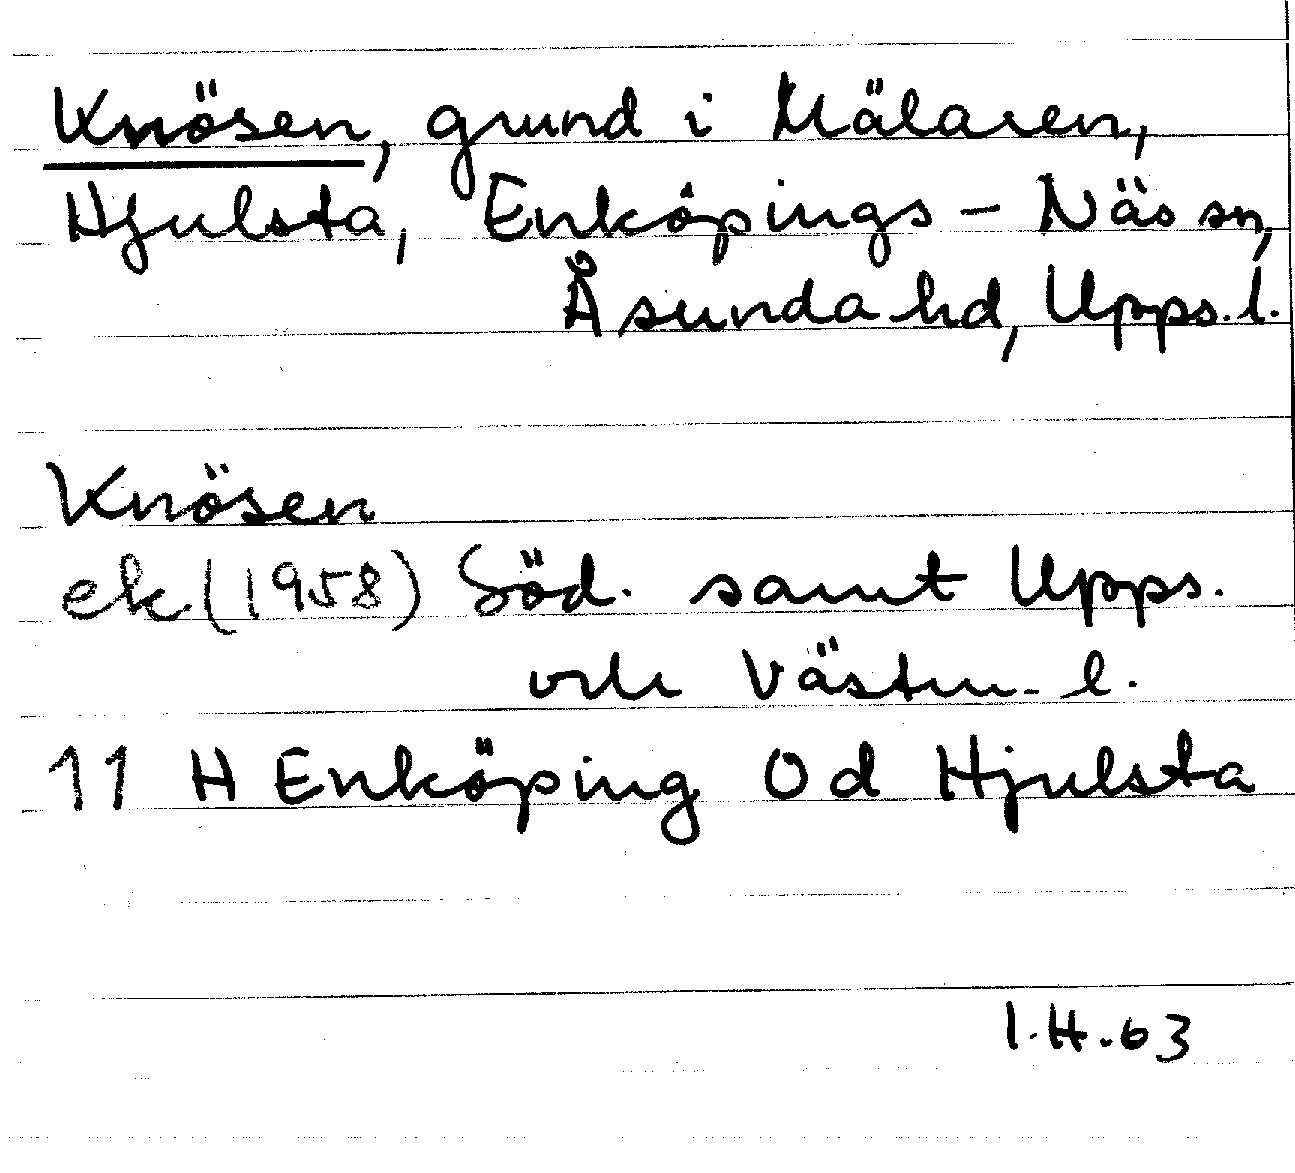 Knösen, grund i Mälaren,
Hjulsta, Enköpings-Näs sn,
Åsunda hd, Upps. l.
Knösen
ek. (1958) Söd. samt Upps.
och Västm. l.
11 H Enköping Od Hjulsta
I.H.63